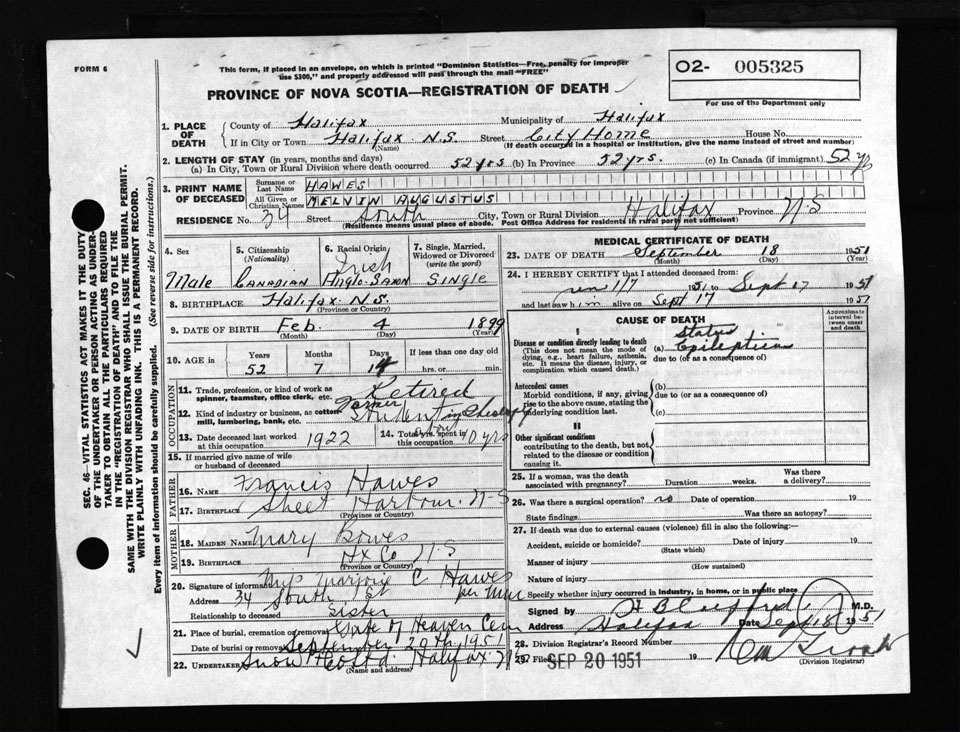 FORM 6
This form, if placed in an envelope, on which is printed "Dominion Statistics—Free, penalty for improper
use $300," and properly addressed will pass through the mail "FREE"
PROVINCE OF NOVA SCOTIA—REGISTRATION OF DEATH
O2- 005325
For use of the Department only
SEC. 46—VITAL STATISTICS ACT MAKES IT THE DUTY
OF THE UNDERTAKER OR PERSON ACTING AS UNDER-
TAKER TO OBTAIN ALL THE PARTICULARS REQUIRED
IN THE "REGISTRATION OF DEATH" AND TO FILE THE
SAME WITH THE DIVISION REGISTRAR WHO SHALL ISSUE THE BURIAL PERMIT.
WRITE PLAINLY WITH UNFADING INK. THIS IS A PERMANENT RECORD.
Every item of information should be carefully supplied. (See reverse side for instructions.)
1. PLACE OF DEATH
County of Halifax Municipality of Halifax
If in City or Town Halifax N.S. Street City Home House No.
(Name) (If death occurred in a hospital or institution, give the name instead of street and number)
2. LENGTH OF STAY (in years, months and days)
(a) In City, Town or Rural Division where death occurred 52 yrs (b) In Province 52 yrs. (c) In Canada (if immigrant) 52 yrs
3. PRINT NAME OF DECEASED
Surname or Last Name HAWES
All Given or Christian Names MELVIN AUGUSTUS
RESIDENCE No. 34 Street South City, Town or Rural Division Halifax Province N.S
(Residence means usual place of abode. Post Office Address for residents in rural parts not sufficient)
4. Sex
Male
5. Citizenship (Nationality)
CANADIAN
6. Racial Origin
Irish
ANGLO-SAXON
7. Single, Married, Widowed or Divorced (write the word)
SINGLE
8. BIRTHPLACE Halifax N.S.
(Province or Country)
9. DATE OF BIRTH Feb. 4 1899
(Month) (Day) (Year)
10. AGE in Years Months Days If less than one day old
52 7 14 hrs. or min.
OCCUPATION
11. Trade, profession, or kind of work as spinner, teamster, office clerk, etc. Retired
12. Kind of industry or business, as cotton mill, lumbering, bank, etc. Former Student in Theology
13. Date deceased last worked at this occupation 1922
14. Total yrs. spent in this occupation 10 yrs
15. If married give name of wife or husband of deceased
FATHER
16. NAME Francis Hawes
17. BIRTHPLACE Sheet Harbour N-S
(Province or Country)
MOTHER
18. MAIDEN NAME Mary Bowes
19. BIRTHPLACE Hx Co N-S
(Province or Country)
20. Signature of informant Mrs Marjorie C Hawes
Address 34 South St per
Relationship to deceased Sister
21. Place of burial, cremation or removal Gate of Heaven Cem
Date of burial or removal September 20th 1951
22. UNDERTAKER Snow & Co Ltd. Halifax N.S
(Name and address)
MEDICAL CERTIFICATE OF DEATH
23. DATE OF DEATH September 18 1951
(Month) (Day) (Year)
24. I HEREBY CERTIFY that I attended deceased from:
1951 to Sept 17 1951
and last saw him alive on Sept 17 1951
CAUSE OF DEATH
Approximate interval between onset and death
I
Disease or condition directly leading to death
(This does not mean the mode of dying, e.g., heart failure, asthenia, etc. It means the disease, injury, or complication which caused death.)
(a) Status Epilepticus
due to (or as a consequence of)
Antecedent causes
Morbid conditions, if any, giving rise to the above cause, stating the underlying condition last.
(b)
due to (or as a consequence of)
(c)
II
Other significant conditions
contributing to the death, but not related to the disease or condition causing it.
25. If a woman, was the death associated with pregnancy? Duration weeks. Was there a delivery?
26. Was there a surgical operation? no Date of operation 19
State findings Was there an autopsy?
27. If death was due to external causes (violence) fill in also the following:—
Accident, suicide or homicide? Date of injury 19
(State which)
Manner of injury
(How sustained)
Nature of injury
Specify whether injury occurred in industry, in home, or in public place
Signed by M.D.
Address Halifax Date Sept 18 1951
28. Division Registrar's Record Number
29. Filed SEP 20 1951 19
(Division Registrar)